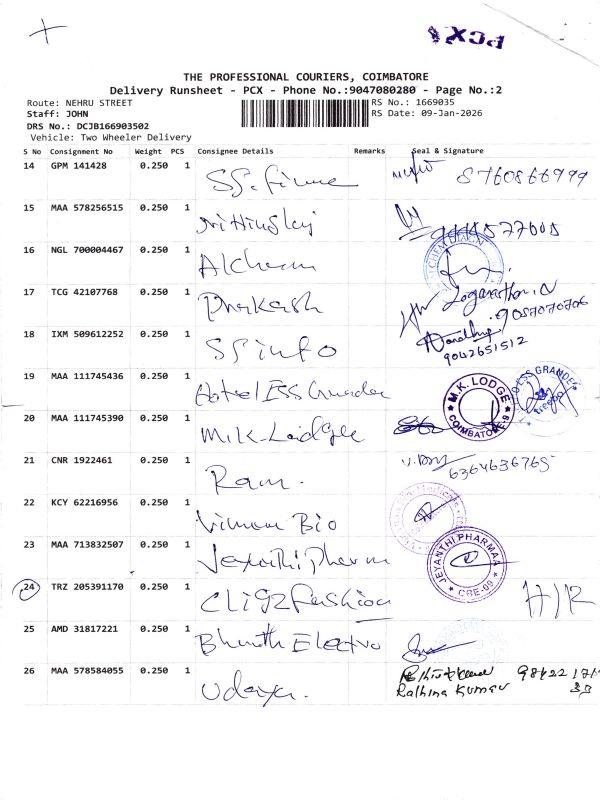 PCX
THE PROFESSIONAL COURIERS, COIMBATORE
Delivery Runsheet - PCX - Phone No.:9047080280 - Page No.:2
Route: NEHRU STREET RS No.: 1669035
Staff: JOHN RS Date: 09-Jan-2026
DRS No.: DCJB166903502
Vehicle: Two Wheeler Delivery
S No Consignment No Weight PCS Consignee Details Remarks Seal & Signature
14 GPM 141428 0.250 1 8760866999
15 MAA 578256515 0.250 1
16 NGL 700004467 0.250 1 Alchem
17 TCG 42107768 0.250 1 Prakash Loganathan. N
9087070706
18 IXM 509612252 0.250 1 SS info
9042651512
19 MAA 111745436 0.250 1 Hotel ESS Grandee ESS GRANDE
20 MAA 111745390 0.250 1 M.K-Lodge M.K. LODGE COIMBATORE-9
21 CNR 1922461 0.250 1 Ram. 6364636765
22 KCY 62216956 0.250 1 Bio
23 MAA 713832507 0.250 1 Jeyanthi pharm JEYANTHI PHARMAA CBE-09
24 TRZ 205391170 0.250 1 Fashion
25 AMD 31817221 0.250 1 Electro
26 MAA 578584055 0.250 1 Udaya.
Rathina Kumar